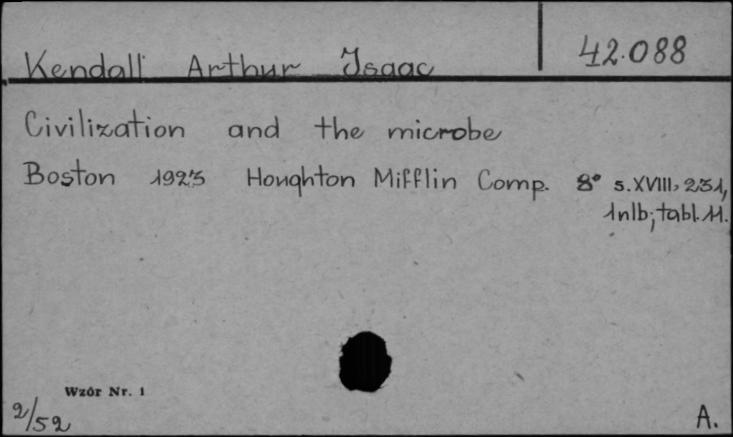 Kendall Arthur Isaac 42.088
Civilization and the microbe
Boston 1923 Houghton Mifflin Comp. 8° s.XVIII, 231,
1nlb; tabl. 11.
Wzór Nr. 1
2/52 A.